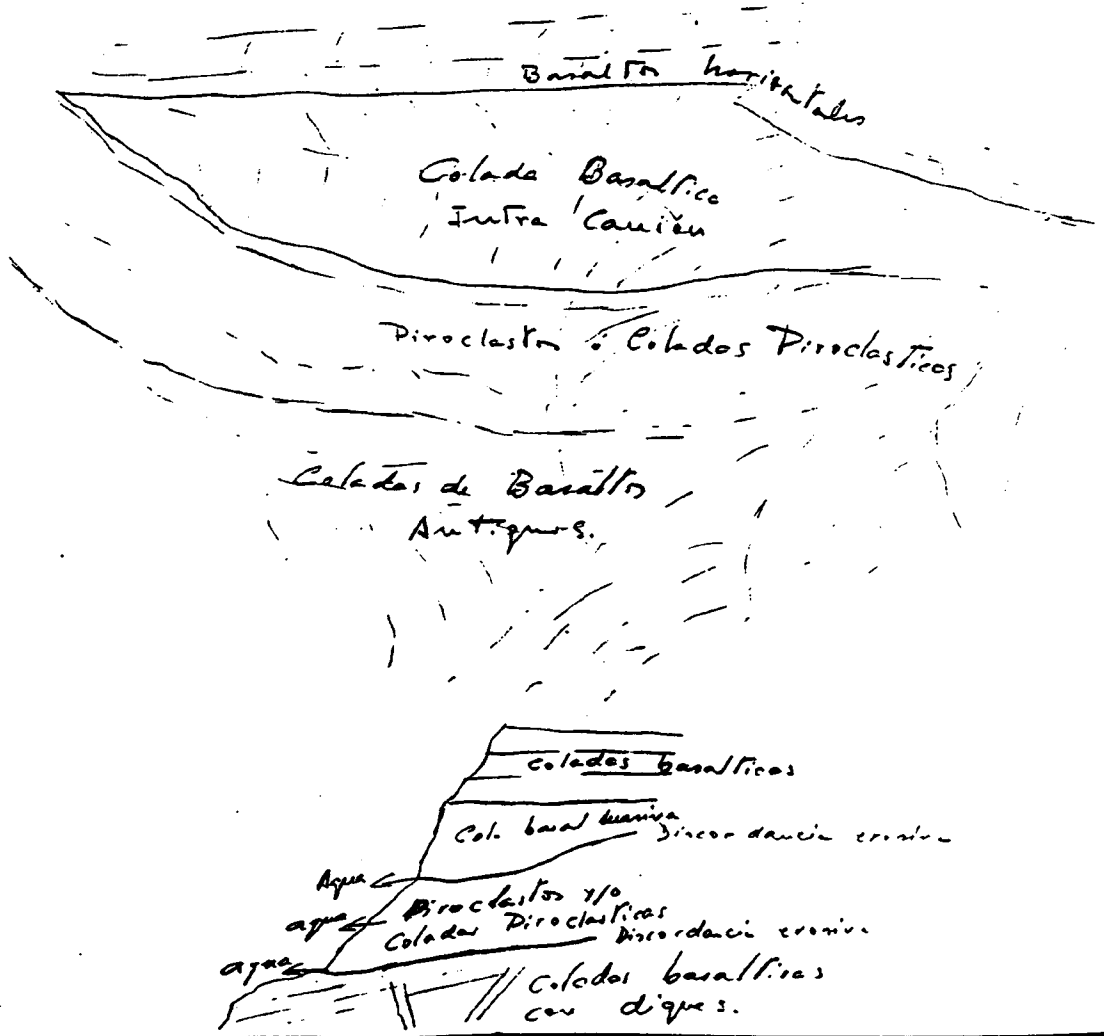 Basaltos horizontales
Colada Basaltica
Intra Cañión
Piroclastos o Coladas Piroclasticas
Coladas de Basaltos
Antiguos.
Coladas basalticas
Cola basal masiva
Discordancia erosiva
Agua
agua
Piroclastos y/o
Coladas Piroclasticas
Discordancia erosiva
agua
Coladas basalticas
con diques.